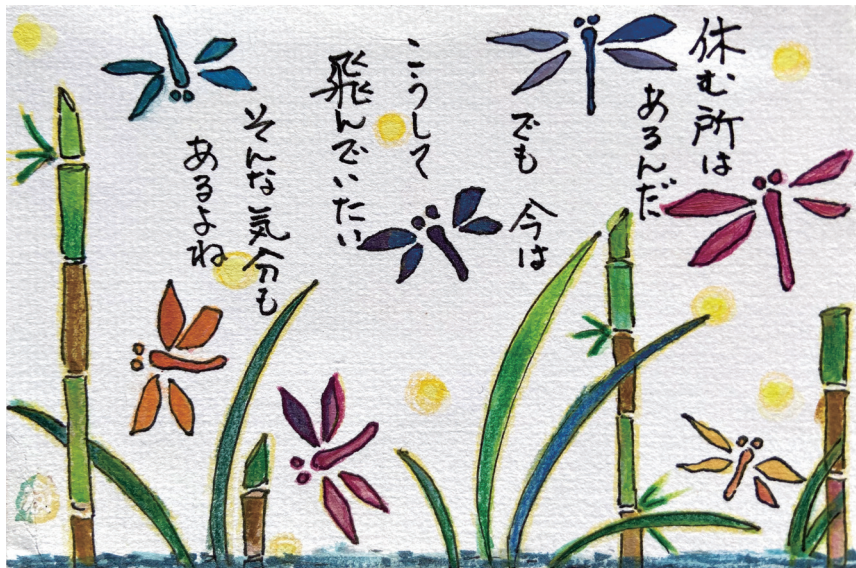 休む所は
あるんだ
でも 今は
こうして
飛んでいたい
そんな気分も
あるよね